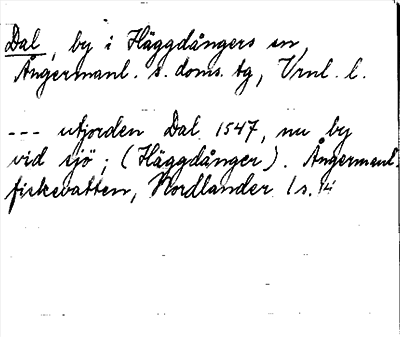 Dal, by i Häggdångers sn,
Ångermanl. s. doms. tg, Vrnl. l.
--- utjorden Dal 1547, nu by
vid sjö; (Häggdånger). Ångermanl.
fiskevatten, Nordlander 1 s. 14